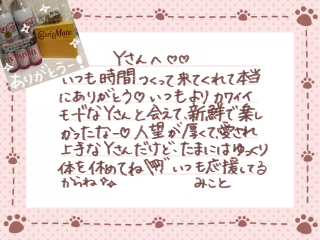 Calorie Mate
ありがとうー!
Yさんへ♡♡
いつも時間つくって来てくれて本当
にありがとう♡いつもよりカワイイ
モードなYさんと会えて、新鮮で楽し
かったなー♡人望が厚くて愛され
上手なYさんだけど、たまにはゆっくり
体を休めてね いつも応援してる
からね
みこと